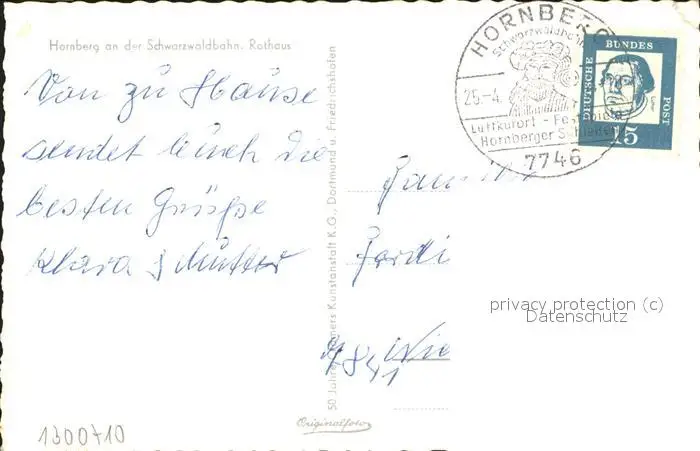 Hornberg an der Schwarzwaldbahn. Rothaus
Von zu Hause
sendet Euch die
besten Grüße
Klara & Mutter
50 Jahre
Kunstanstalt K.G., Dortmund u. Friedrichshafen
Originalfoto
1300710
HORNBERG
Schwarzwaldbahn
25.-4.
Luftkurort - Festspiele
Hornberger Schießen
7746
DEUTSCHE
BUNDES
POST
15
Fami
Ferdi
privacy protection (c)
Datenschutz